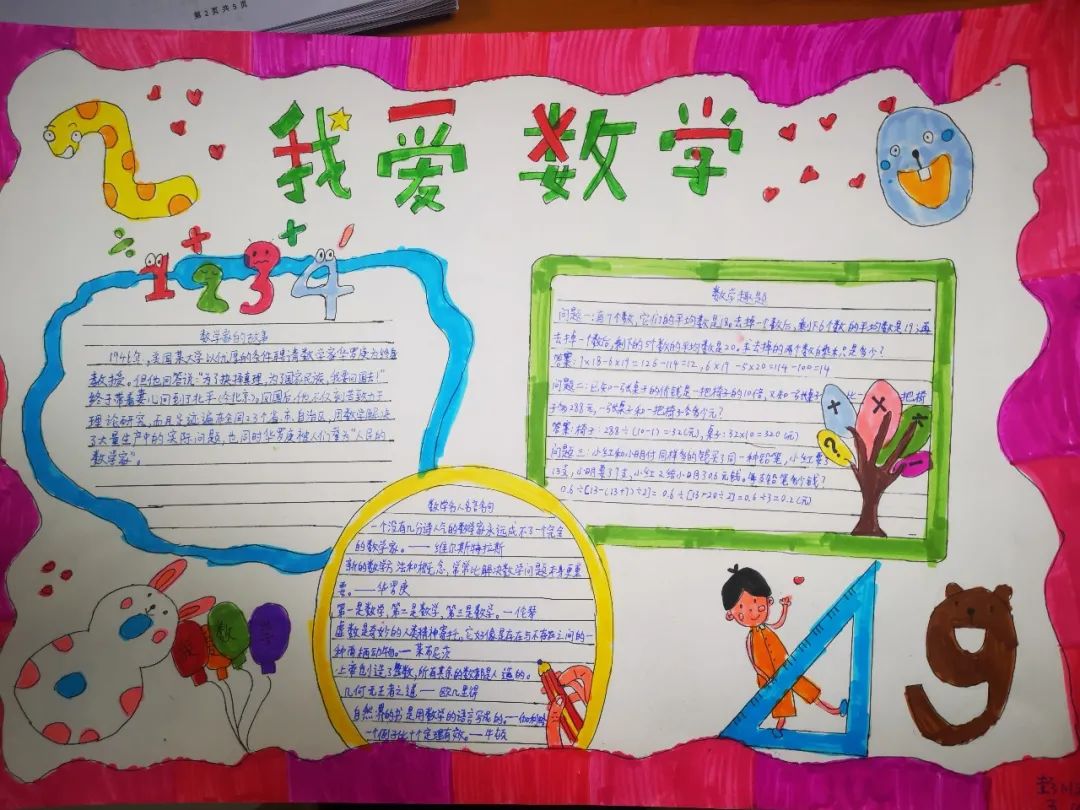 第 2 页 共 5 页
我爱数学
÷ + +
1 2 3 4
数学家的故事
1946年,美国某大学以优厚的条件聘请数学家华罗庚为终身
教授。但他回答说:“为了抉择真理,为了国家民族,我要回国去!”
终于带着妻儿回到了北平(今北京)。回国后,他不仅刻苦致力于
理论研究,而且足迹遍布全国23个省、市、自治区,用数学解决
了大量生产中的实际问题,也同时华罗庚被人们誉为“人民的
数学家”。
数学趣题
问题一:有7个数,它们的平均数是18。去掉一个数后,剩下6个数的平均数是19;再
去掉一个数后,剩下的5个数的平均数是20。求去掉的两个数的乘积是多少?
答案:7×18-6×19=126-114=12,6×19-5×20=114-100=14
问题二:已知一张桌子的价钱是一把椅子的10倍,又知一张桌子比一把椅
子多288元,一张桌子和一把椅子各多少元?
答案:椅子:288÷(10-1)=32(元),桌子:32×10=320(元)
问题三:小红和小明付同样多的钱买了同一种铅笔,小红要了
13支,小明要了7支,小红又给小明0.6元钱。每支铅笔多少钱?
0.6÷[13-(13+7)÷2]=0.6÷[13-20÷2]=0.6÷3=0.2(元)
+ × × ? -
数学名人名言名句
一个没有几分诗人气的数学家永远成不了一个完全
的数学家。——维尔斯特拉斯
新的数学方法和概念,常常比解决数学问题本身更重
要。——华罗庚
第一是数学,第二是数学,第三是数学。—伦琴
虚数是奇妙的人类精神寄托,它好像是存在与不存在之间的一
种两栖动物。—莱布尼茨
上帝创造了整数,所有其余的数都是人造的。
几何无王者之道——欧几里得
自然界的书是用数学的语言写成的。——伽利略
一个例子比十个定理有效。—牛顿
我爱数学
9